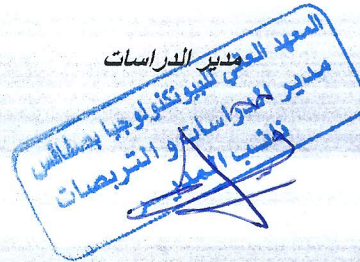 مدير الدراسات
المعهد العالي للبيوتكنولوجيا بصفاقس
مدير الدراسات و التربصات
نائب المدير